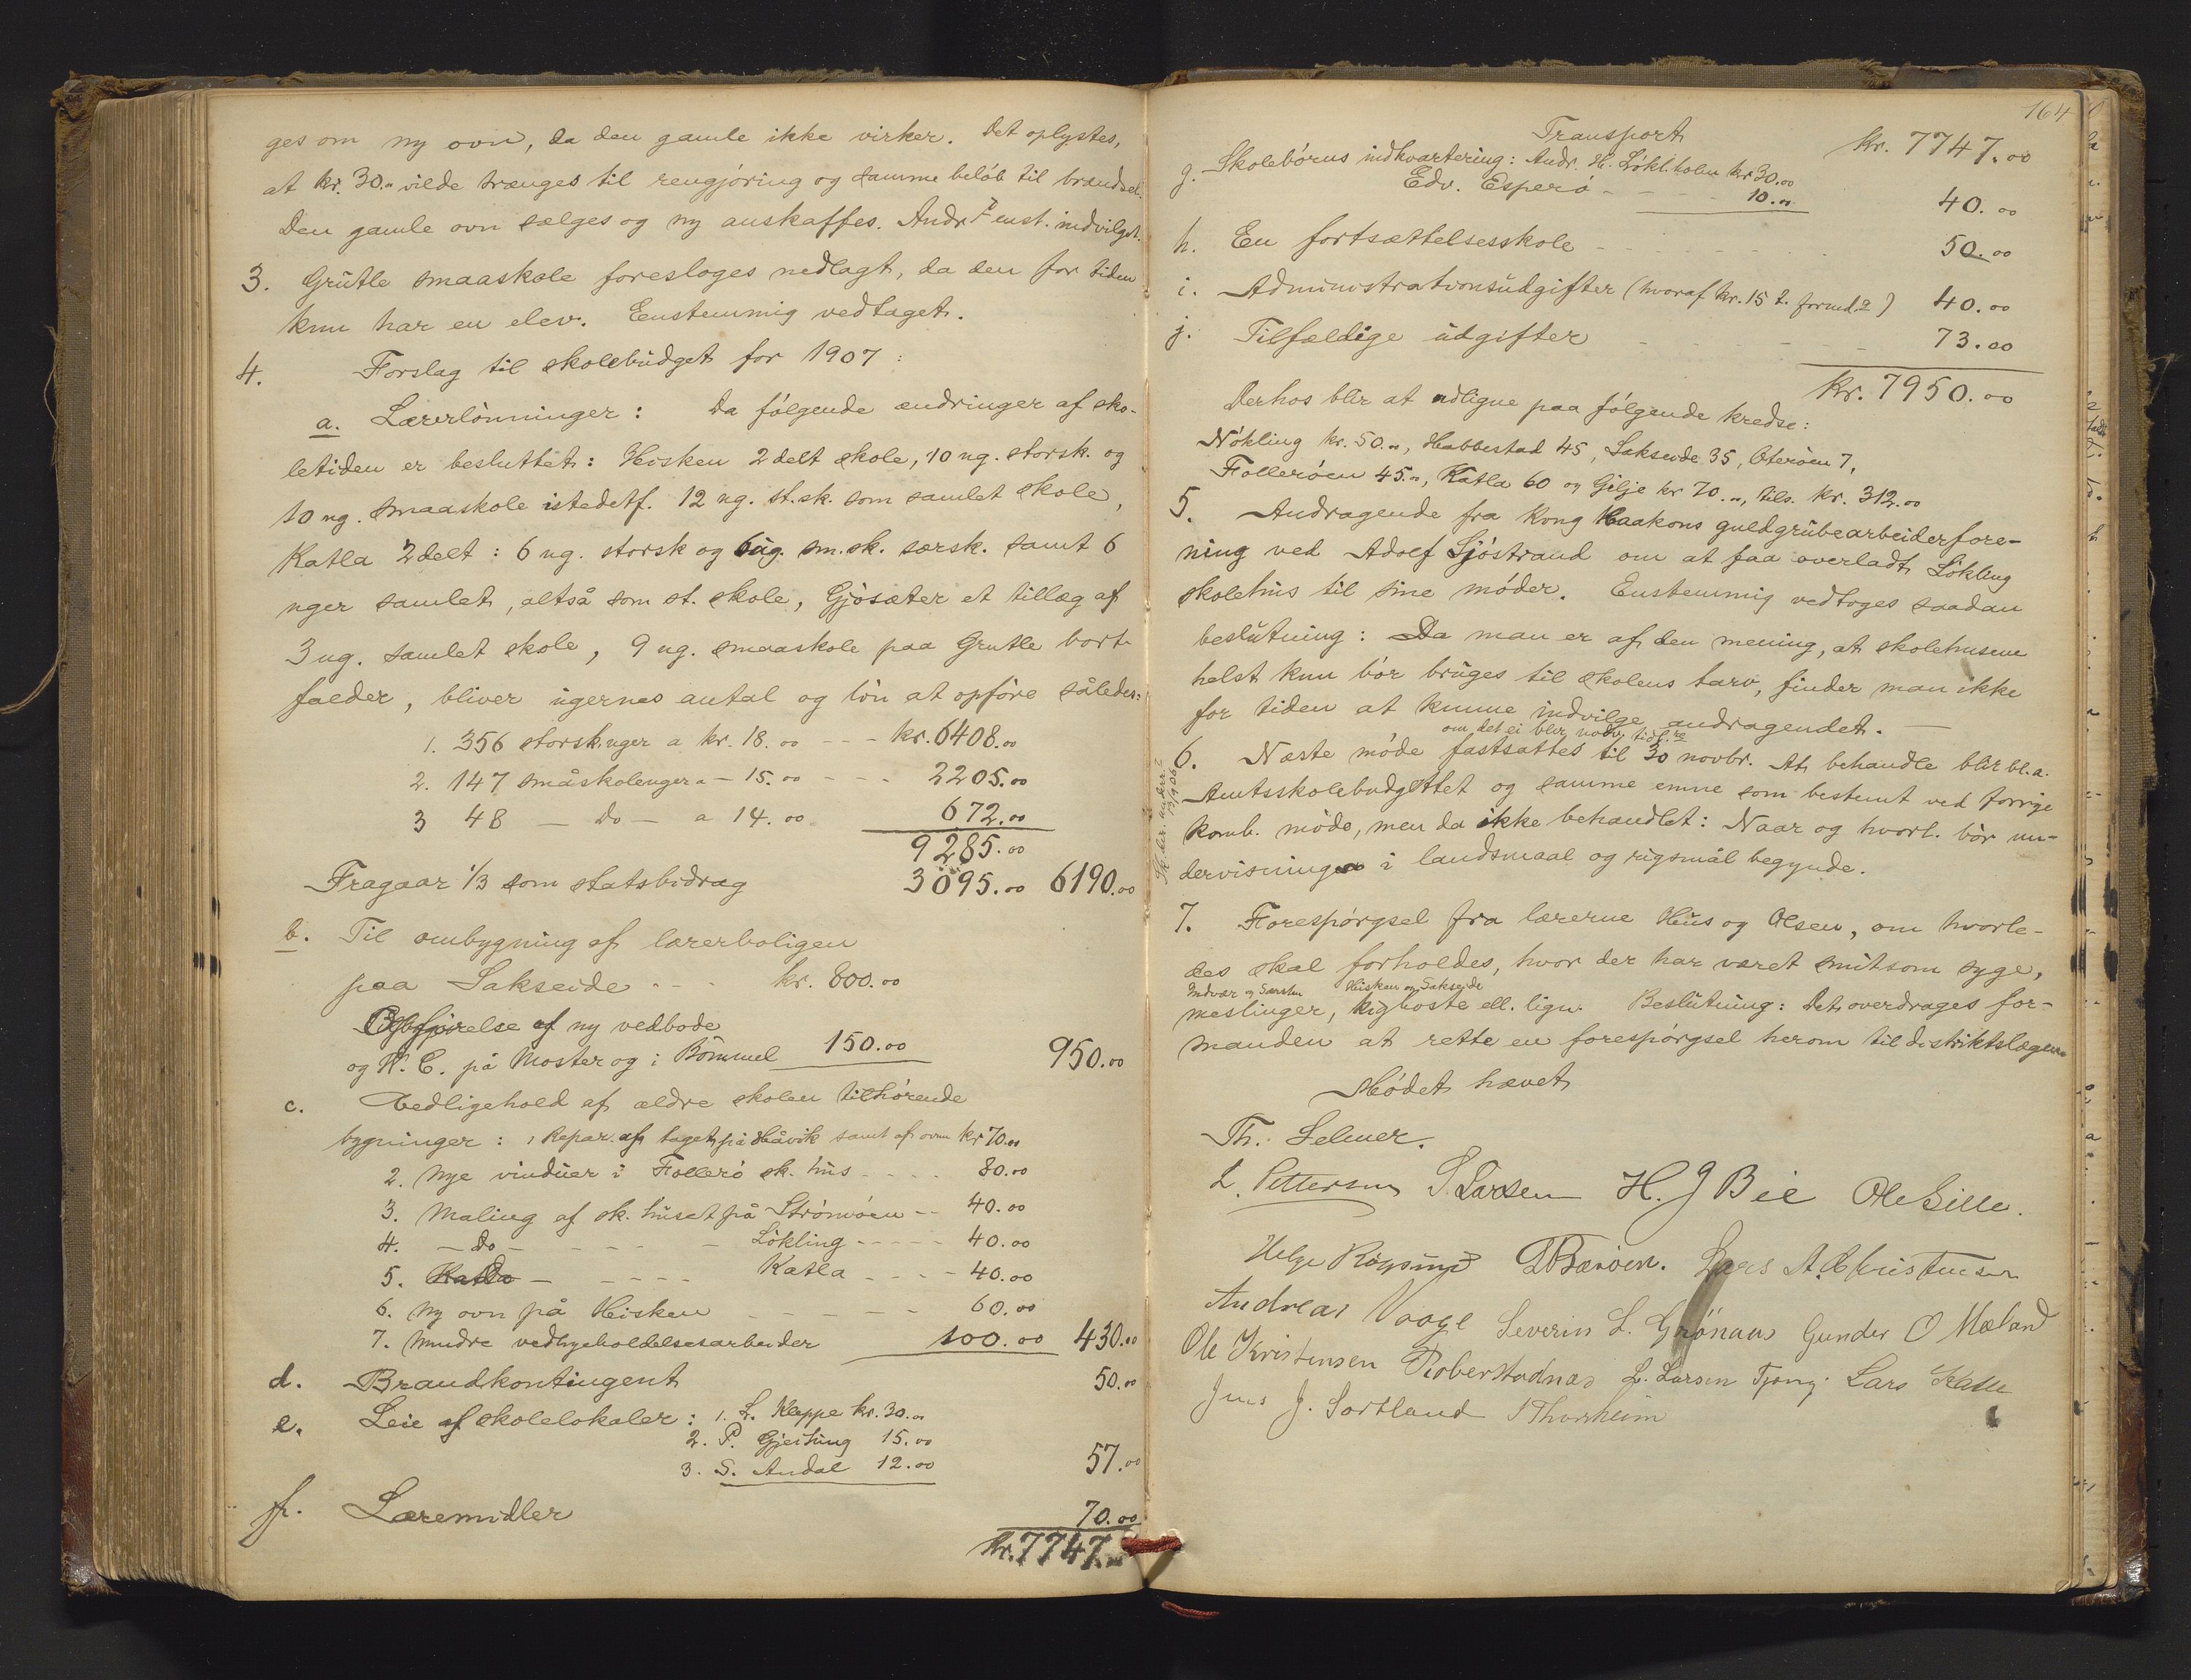 ges om ny ovn, da den gamle ikke virker. Det oplystes,
at kr. 30.00 vilde trænges til rengjøring og samme beløb til brændsel.
Den gamle ovn sælges og ny anskaffes. Andr. enst. indvilget.
3. Grutle smaaskole foresloges nedlagt, da den for tiden
kun har en elev. Eenstemmig vedtaget.
4. Forslag til skolebudget for 1907:
a. Lærerlønninger: Da følgende ændringer af sko-
letiden er besluttet: Hisken 2 delt skole, 10 ug. storsk. og
10 ug. smaaskole istedetf. 12 ug. st.sk. som samlet skole,
Katla 2 delt: 6 ug. storsk og 6 ug. sm.sk. særsk. samt 6
uger samlet, altså som st. skole, Gjøsæter et tillæg af
3 ug. samlet skole, 9 ug. smaaskole paa Grutle bort-
falder, bliver ugernes antal og løn at opføre således:
1. 356 storsk.uger a kr. 18.00 - - - kr. 6408.00
2. 147 småskoleuger a - 15.00 - - - 2205.00
3 48 - Do - a 14.00 672.00
9285.00
Fragaar 1/3 som statsbidrag 3095.00 6190.00
b. Til ombygning af lærerboligen
paa Sakseide - - - kr. 800.00
Opførelse af ny vedbode
og W. C. på Moster og i Bømmel 150.00 950.00
c. Vedligehold af ældre skolen tilhørende
bygninger: 1 Repar. af taget på Håvik samt af ovn kr 70.00
2. Nye vinduer i Follerø sk. hus - - - - 80.00
3. Maling af sk. huset på Strømøen - - 40.00
4. - Do - - - - - Løkling - - - - - 40.00
5. Katla - - - - - Katla - - - - 40.00
6. Ny ovn på Hisken - - - - - 60.00
7. Mindre vedligeholdelsesarbeider 100.00 430.00
d. Brandkontingent 50.00
e. Leie af skolelokaler: 1. L. Kleppe kr. 30.00
2. P. Gjeitung 15.00
3. S. Andal 12.00 57.00
f. Læremidler 70.00
kr. 7747.00
164
Transport kr. 7747.00
g. Skolebørns indkvartering: Andr. H. Løkl.holm kr 30.00
Edv. Esperø - - - 10.00 40.00
h. En fortsættelsesskole - - - - - 50.00
i. Administrationsudgifter (hvoraf kr. 15 t. formd.) 40.00
j. Tilfældige udgifter - - - - - 73.00
Kr. 7950.00
Derhos blir at udligne paa følgende kredse:
Nökling kr. 50.00, Habbestad 45, Sakseide 35, Oterøen 7,
Follerøen 45.00, Katla 60 og Gilje kr 70.00, tils. kr. 312.00
5. Andragende fra Kong Haakons guldgrubearbeiderfore-
ning ved Adolf Sjöstrand om at faa overladt Løkling
skolehus til sine møder. Enstemmig vedtoges saadan
beslutning: Da man er af den mening, at skolehusene
helst kun bør bruges til skolens tarv, finder man ikke
for tiden at kunne indvilge andragendet. —
om det ei blir nødv. tidl.re
6. Næste møde fastsattes til 30 novbr. At behandle blir bl.a.
Amtsskolebudgettet og samme emne som bestemt ved forrige
komb. møde, men da ikke behandlet: Naar og hvorl. bør un-
dervisningen i landsmaal og rigsmål begynde.
7. Forespørgsel fra lærerne Hus og Olsen, om hvorle-
des skal forholdes, hvor der har været smitsom syge,
Hisken og Sakseide
meslinger, kighoste ell. lign. Beslutning: Det overdrages for-
manden at rette en forespørgsel herom til distriktslægen.
Mødet hævet
Th. Selmer.
L. Pettersen S. Larsen H. J Bee Ole Gille.
Helge Røgsund Lars A. Christensen
Andreas Vaage Severin L. Grønaas Gunder O Mæland
Ole Kristensen Roberstadnæs L. Larsen Tjong. Lars Katle
Jens J. Sortland J Thorsheim